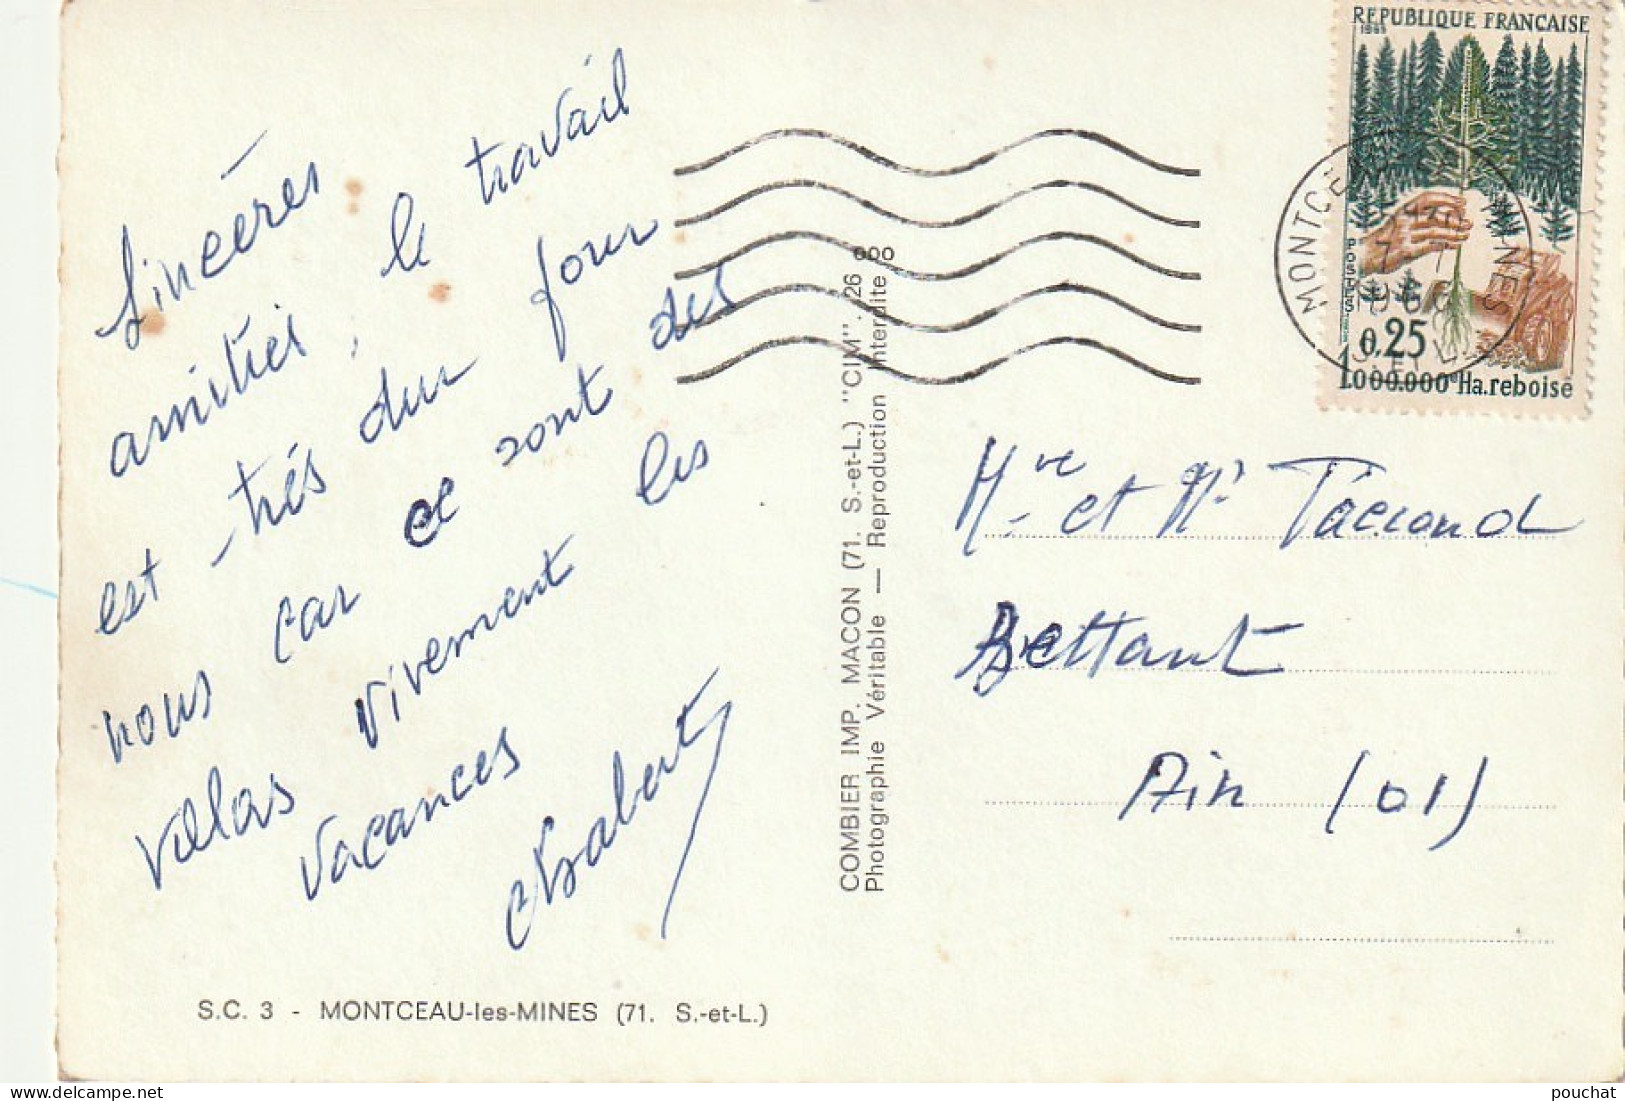 Sincères
amitiés, le travail
est très dur pour
nous car ce sont des
vélos vivement les
vacances
Chabert
S.C. 3 - MONTCEAU-les-MINES (71. S.-et-L.)
COMBIER IMP. MACON (71. S.-et-L.) "CIM". 26
Photographie Véritable — Reproduction Interdite
REPUBLIQUE FRANÇAISE
1965
POSTES
0,25
1.000.000e Ha.reboisé
MONTCE MINES
S. ET L.
Mme et Mr Taccond
Bettant
Ain (01)
pouchat